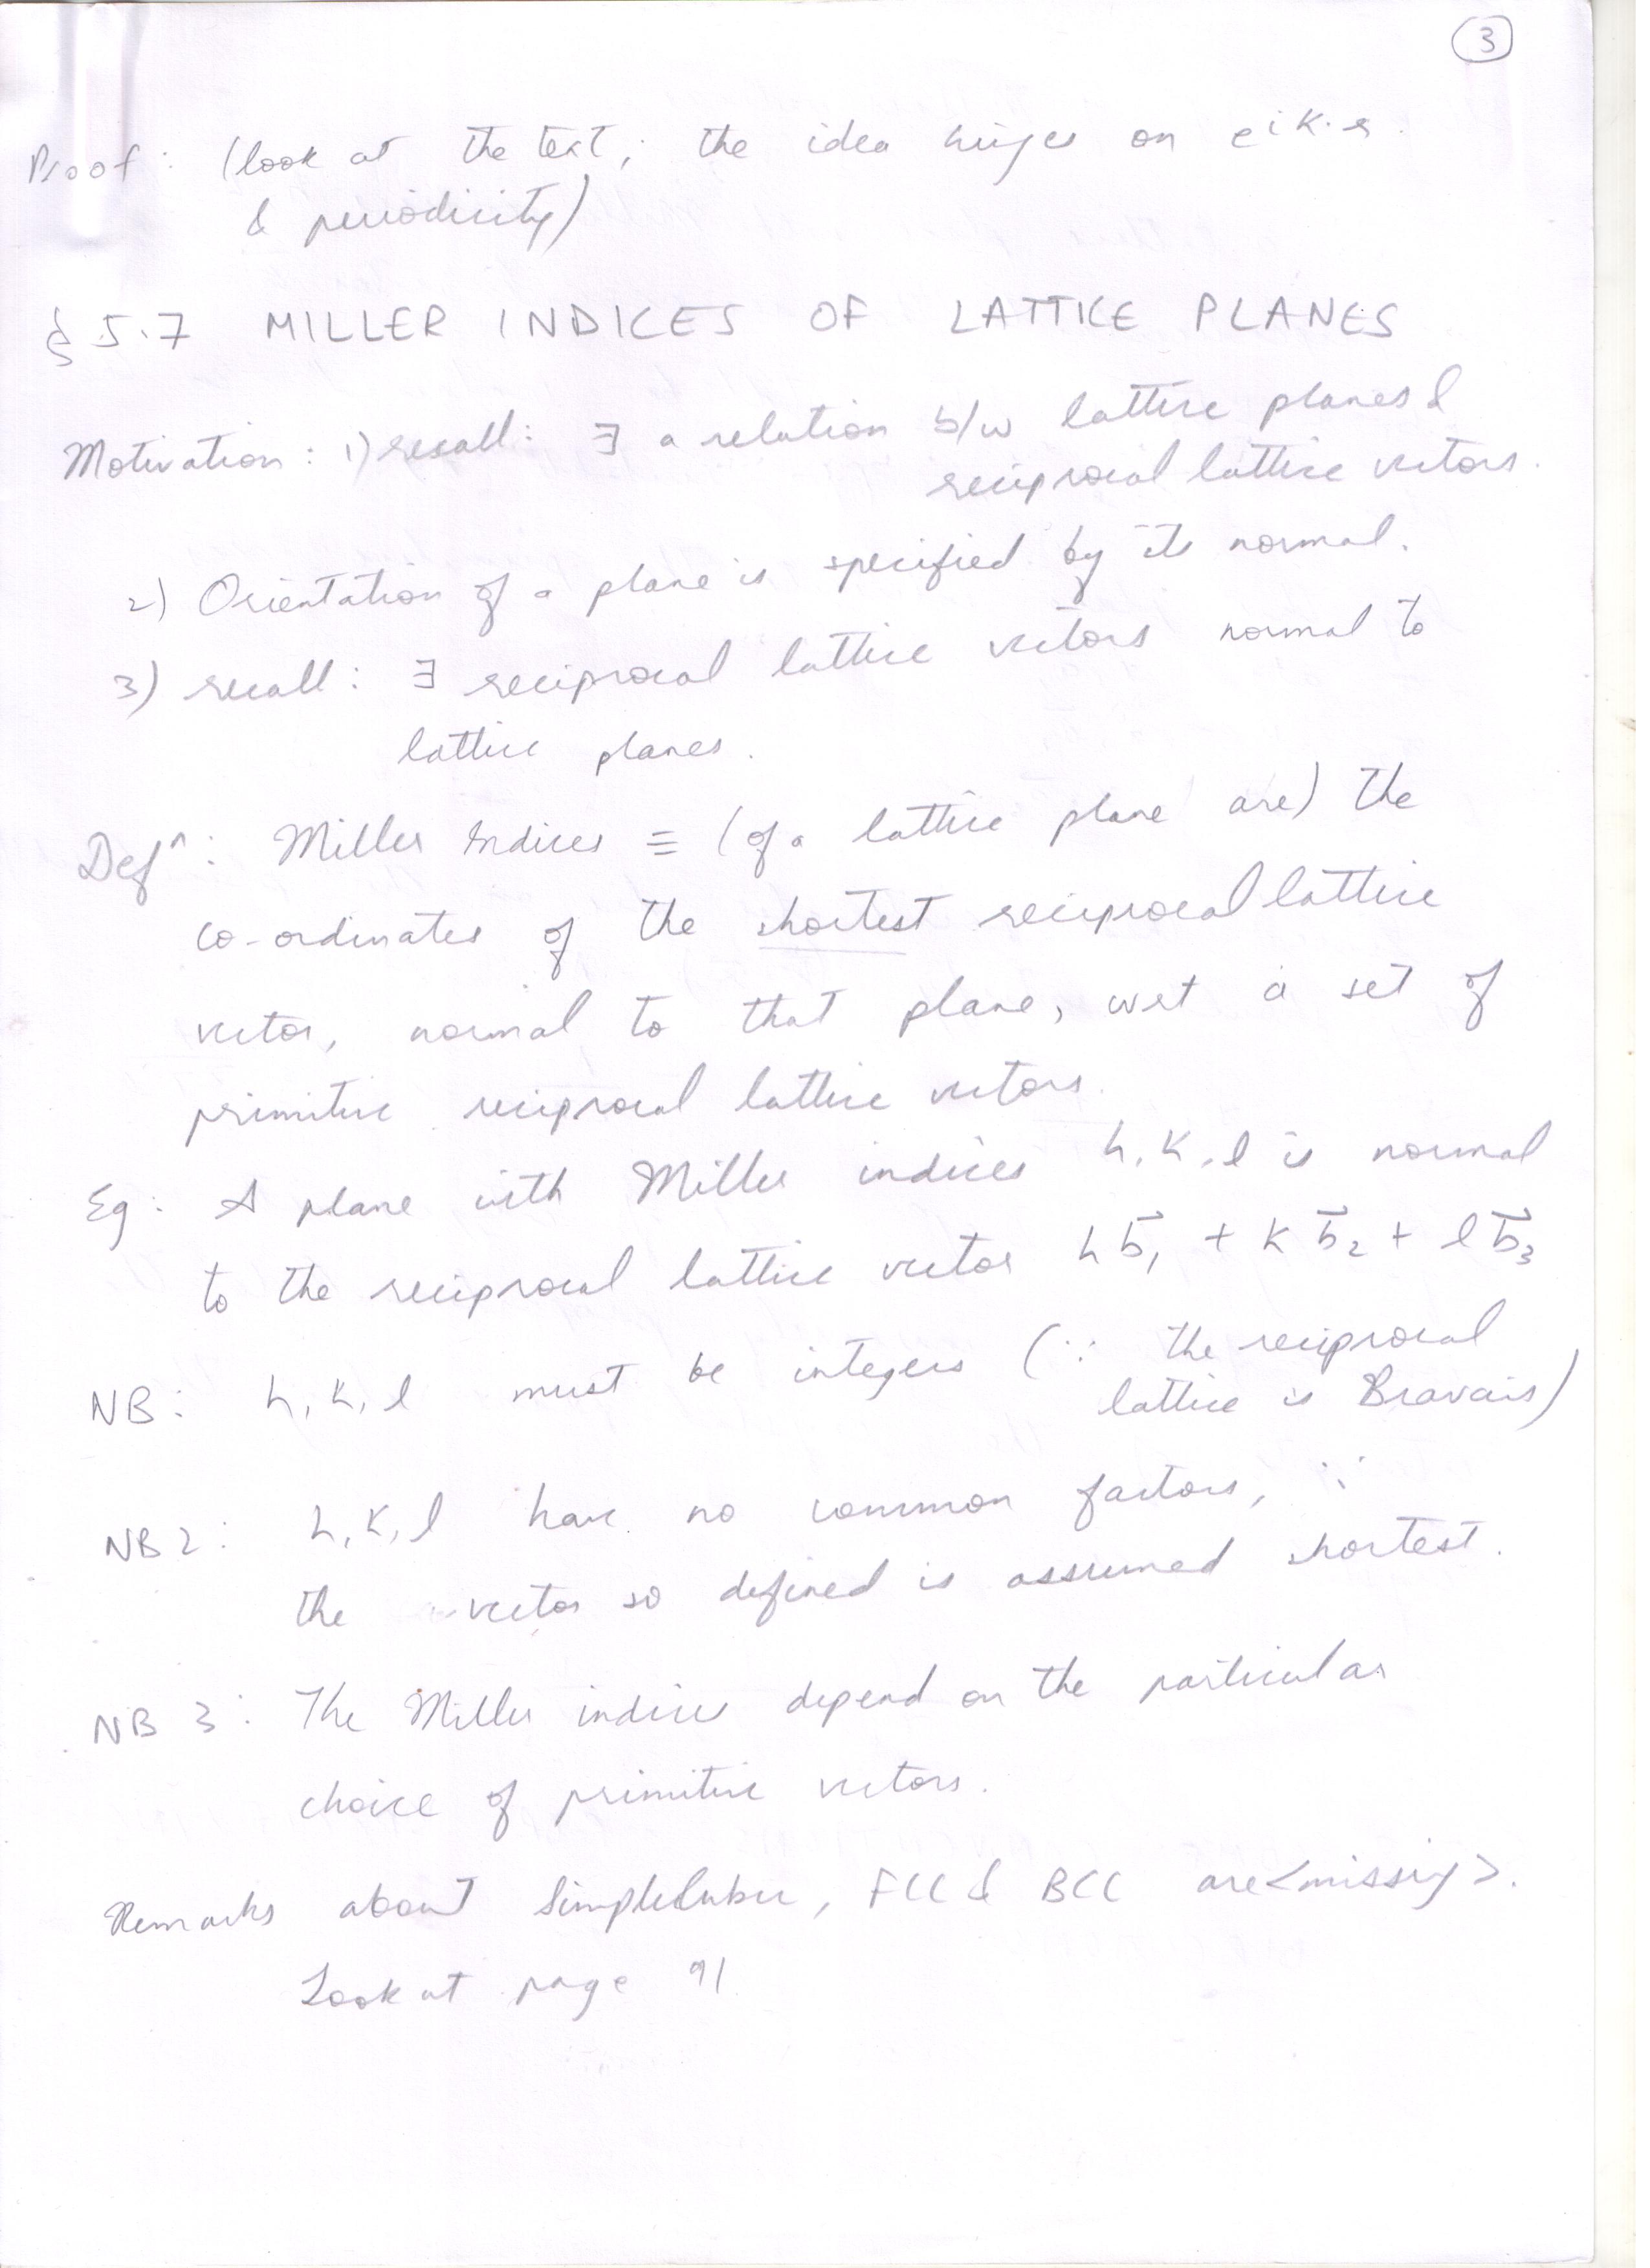 3
Proof: (look at the text; the idea hinges on e^{iK·r}.
& periodicity)
§ 5.7 MILLER INDICES OF LATTICE PLANES
Motivation: 1) recall: ∃ a relation b/w lattice planes &
reciprocal lattice vectors.
2) Orientation of a plane is specified by its normal.
3) recall: ∃ reciprocal lattice vectors normal to
lattice planes.
Defⁿ: Miller Indices ≡ (of a lattice plane are) the
co-ordinates of the shortest reciprocal lattice
vector, normal to that plane, wrt a set of
primitive reciprocal lattice vectors.
Eg: A plane with Miller indices h, k, l is normal
to the reciprocal lattice vector h b⃗₁ + k b⃗₂ + l b⃗₃
NB: h, k, l must be integers (∵ the reciprocal
lattice is Bravais)
NB 2: h, k, l have no common factors, ∵
the vector so defined is assumed shortest.
NB 3: The Miller indices depend on the particular
choice of primitive vectors.
Remarks about Simple Cubic, FCC & BCC are <missing>.
Look at page 91